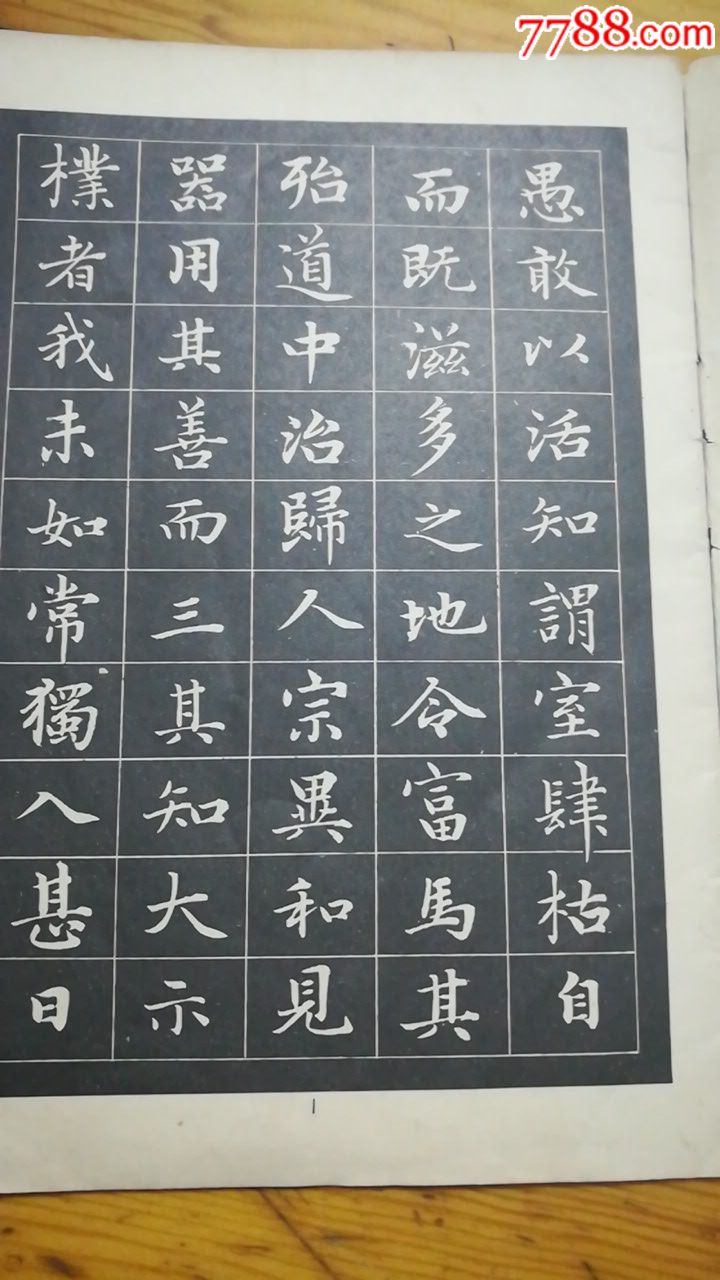 7788.com
愚敢以活知謂室肆枯自
而既滋多之地令富馬其
殆道中治歸人宗異和見
器用其善而三其知大示
樸者我未如常獨入甚日
1